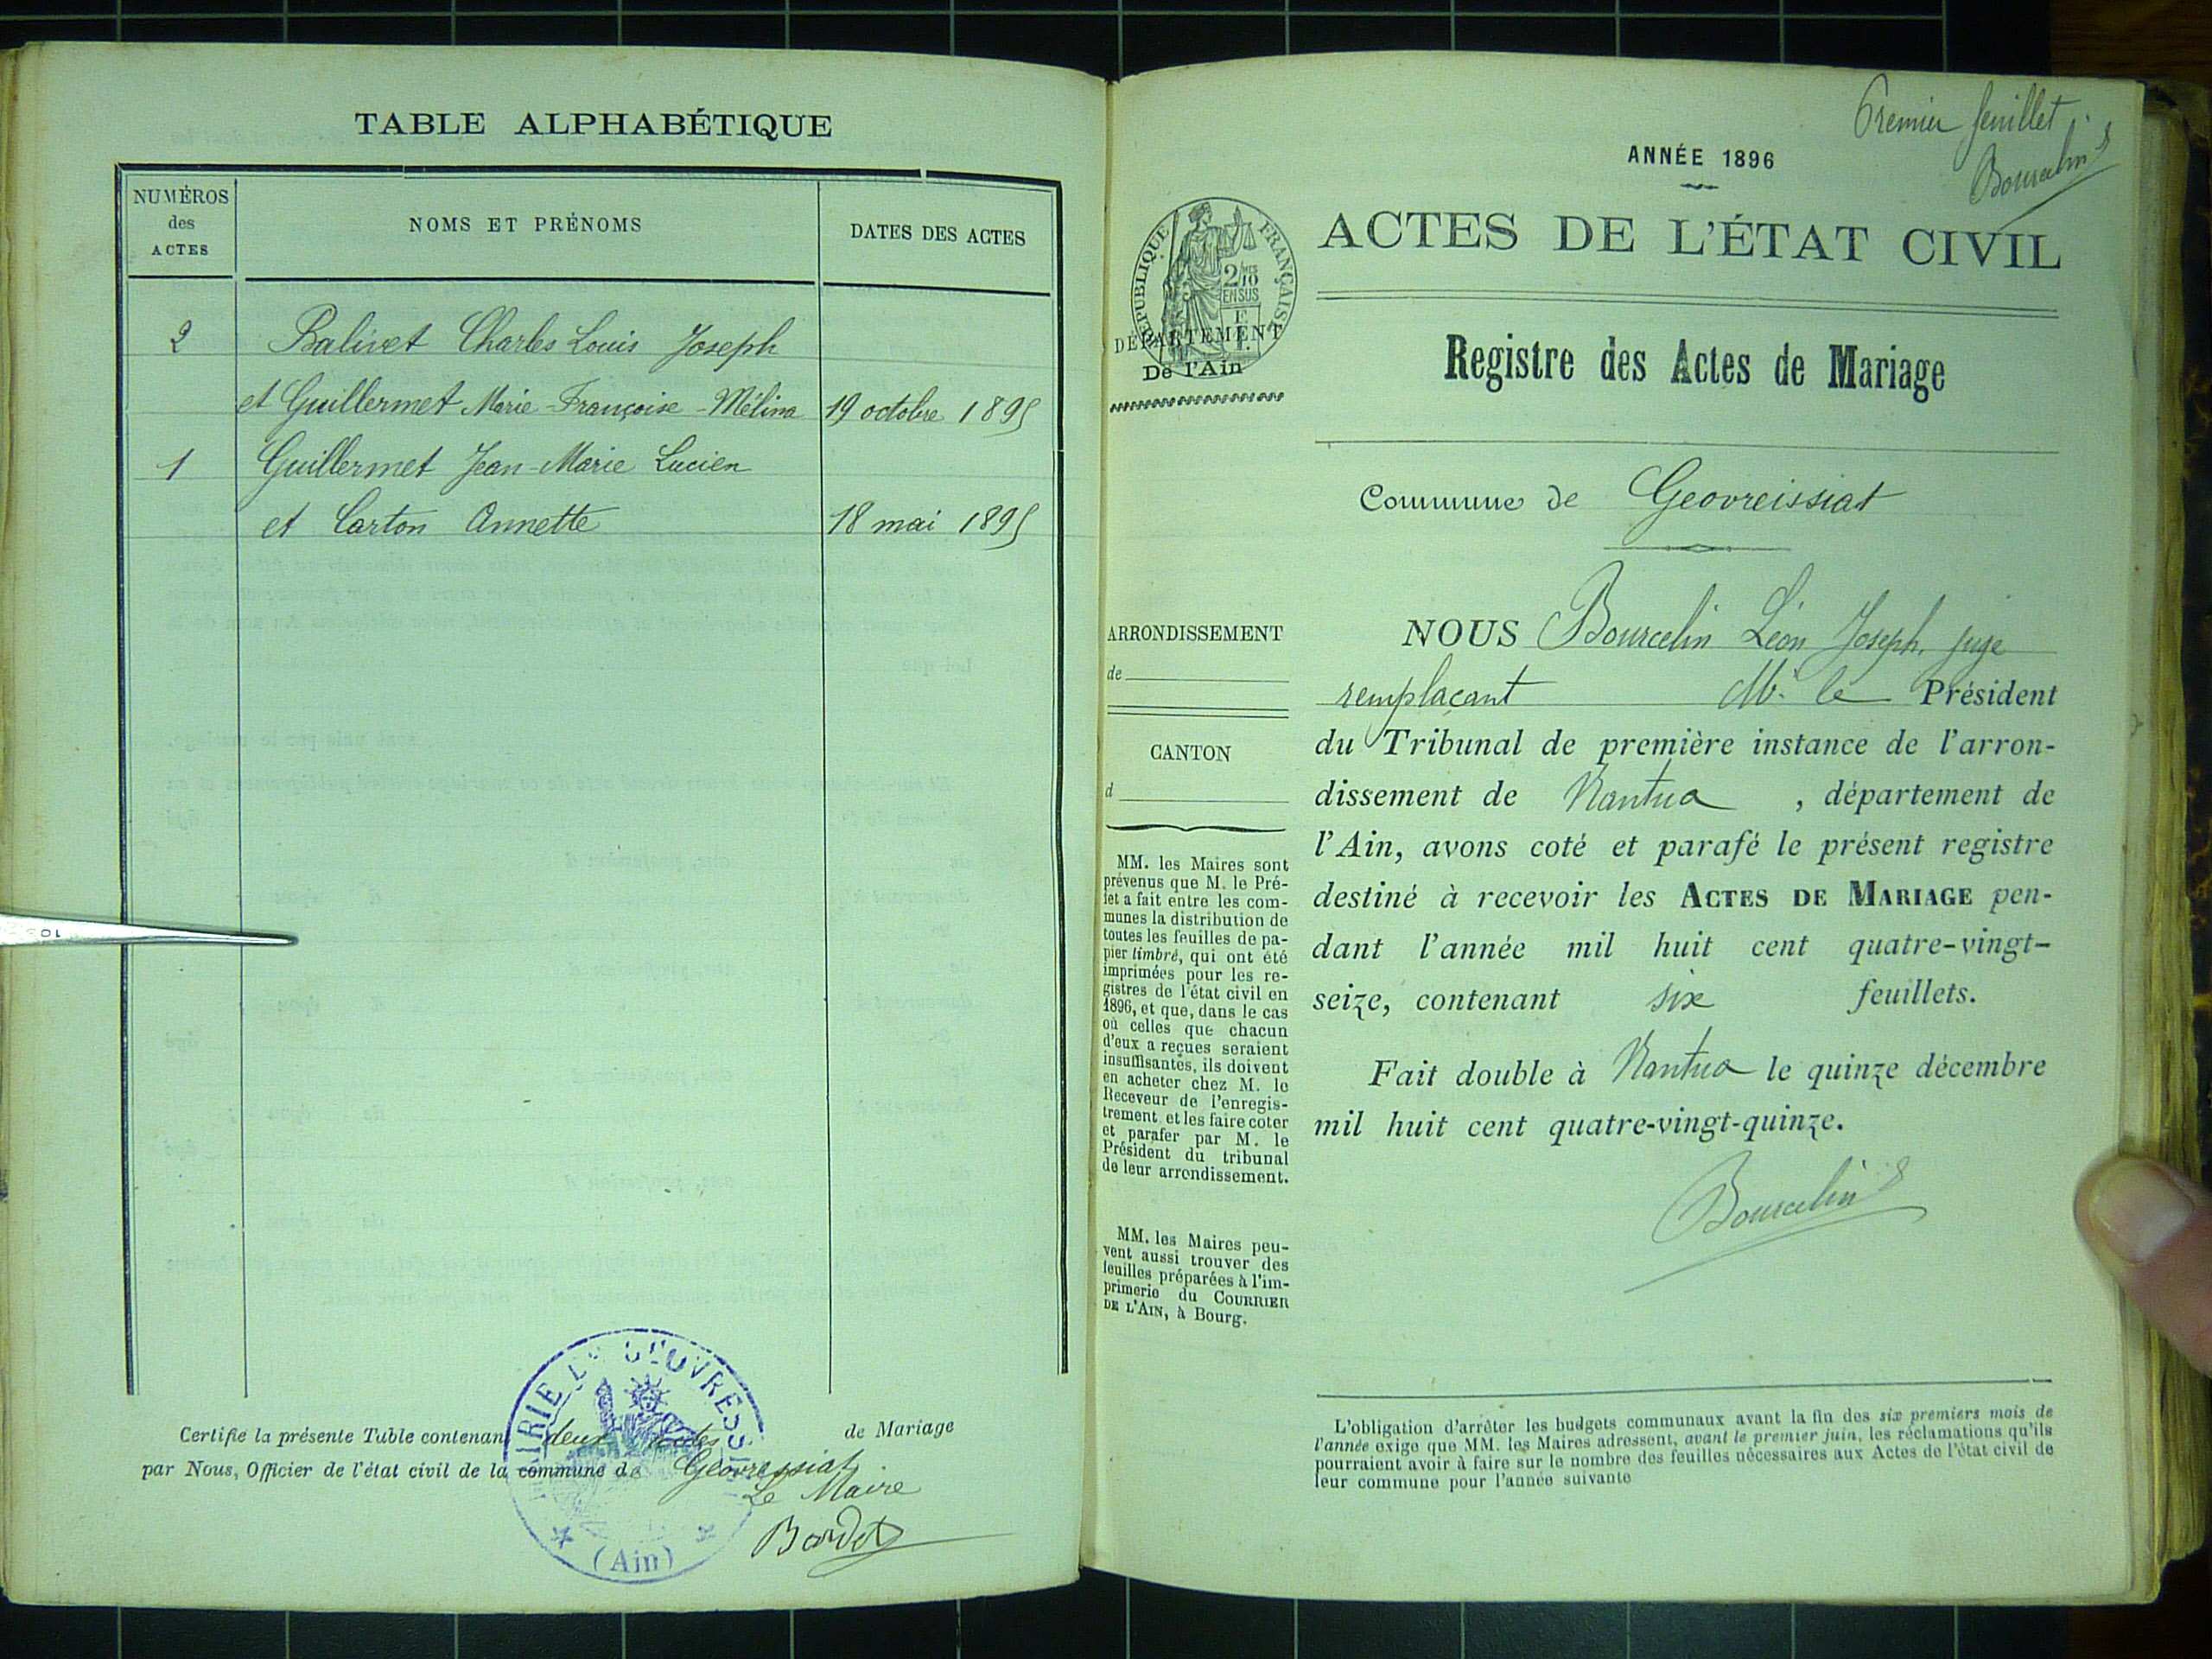 TABLE ALPHABÉTIQUE
NUMÉROS
des
ACTES
NOMS ET PRÉNOMS
DATES DES ACTES
2 Balivet Charles Louis Joseph
et Guillermet Marie-Françoise-Mélina 19 octobre 1895
1 Guillermet Jean-Marie Lucien
et Carton Annette 18 mai 1895
Certifie la présente Table contenant deux actes de Mariage
par Nous, Officier de l'état civil de la commune de Géovressiat
Le Maire
Bardet
(Ain)
Premier feuillet
Bourcelin
ANNÉE 1896
ACTES DE L'ÉTAT CIVIL
RÉPUBLIQUE FRANÇAISE
2/10 MES
EN SUS
DÉPARTEMENT
De l'Ain
Registre des Actes de Mariage
Commune de Geovreissiat
ARRONDISSEMENT
de
CANTON
d
MM. les Maires sont
prévenus que M. le Pré-
fet a fait entre les com-
munes la distribution de
toutes les feuilles de pa-
pier timbré, qui ont été
imprimées pour les re-
gistres de l'état civil en
1896, et que, dans le cas
où celles que chacun
d'eux a reçues seraient
insuffisantes, ils doivent
en acheter chez M. le
Receveur de l'enregis-
trement et les faire coter
et parafer par M. le
Président du tribunal
de leur arrondissement.
MM. les Maires peu-
vent aussi trouver des
feuilles préparées à l'im-
primerie du COURRIER
DE L'AIN, à Bourg.
NOUS Bourcelin Léon Joseph, juge
remplaçant Mr. le Président
du Tribunal de première instance de l'arron-
dissement de Nantua , département de
l'Ain, avons coté et parafé le présent registre
destiné à recevoir les ACTES DE MARIAGE pen-
dant l'année mil huit cent quatre-vingt-
seize, contenant six feuillets.
Fait double à Nantua le quinze décembre
mil huit cent quatre-vingt-quinze.
Bourcelin
L'obligation d'arrêter les budgets communaux avant la fin des six premiers mois de
l'année exige que MM. les Maires adressent, avant le premier juin, les réclamations qu'ils
pourraient avoir à faire sur le nombre des feuilles nécessaires aux Actes de l'état civil de
leur commune pour l'année suivante